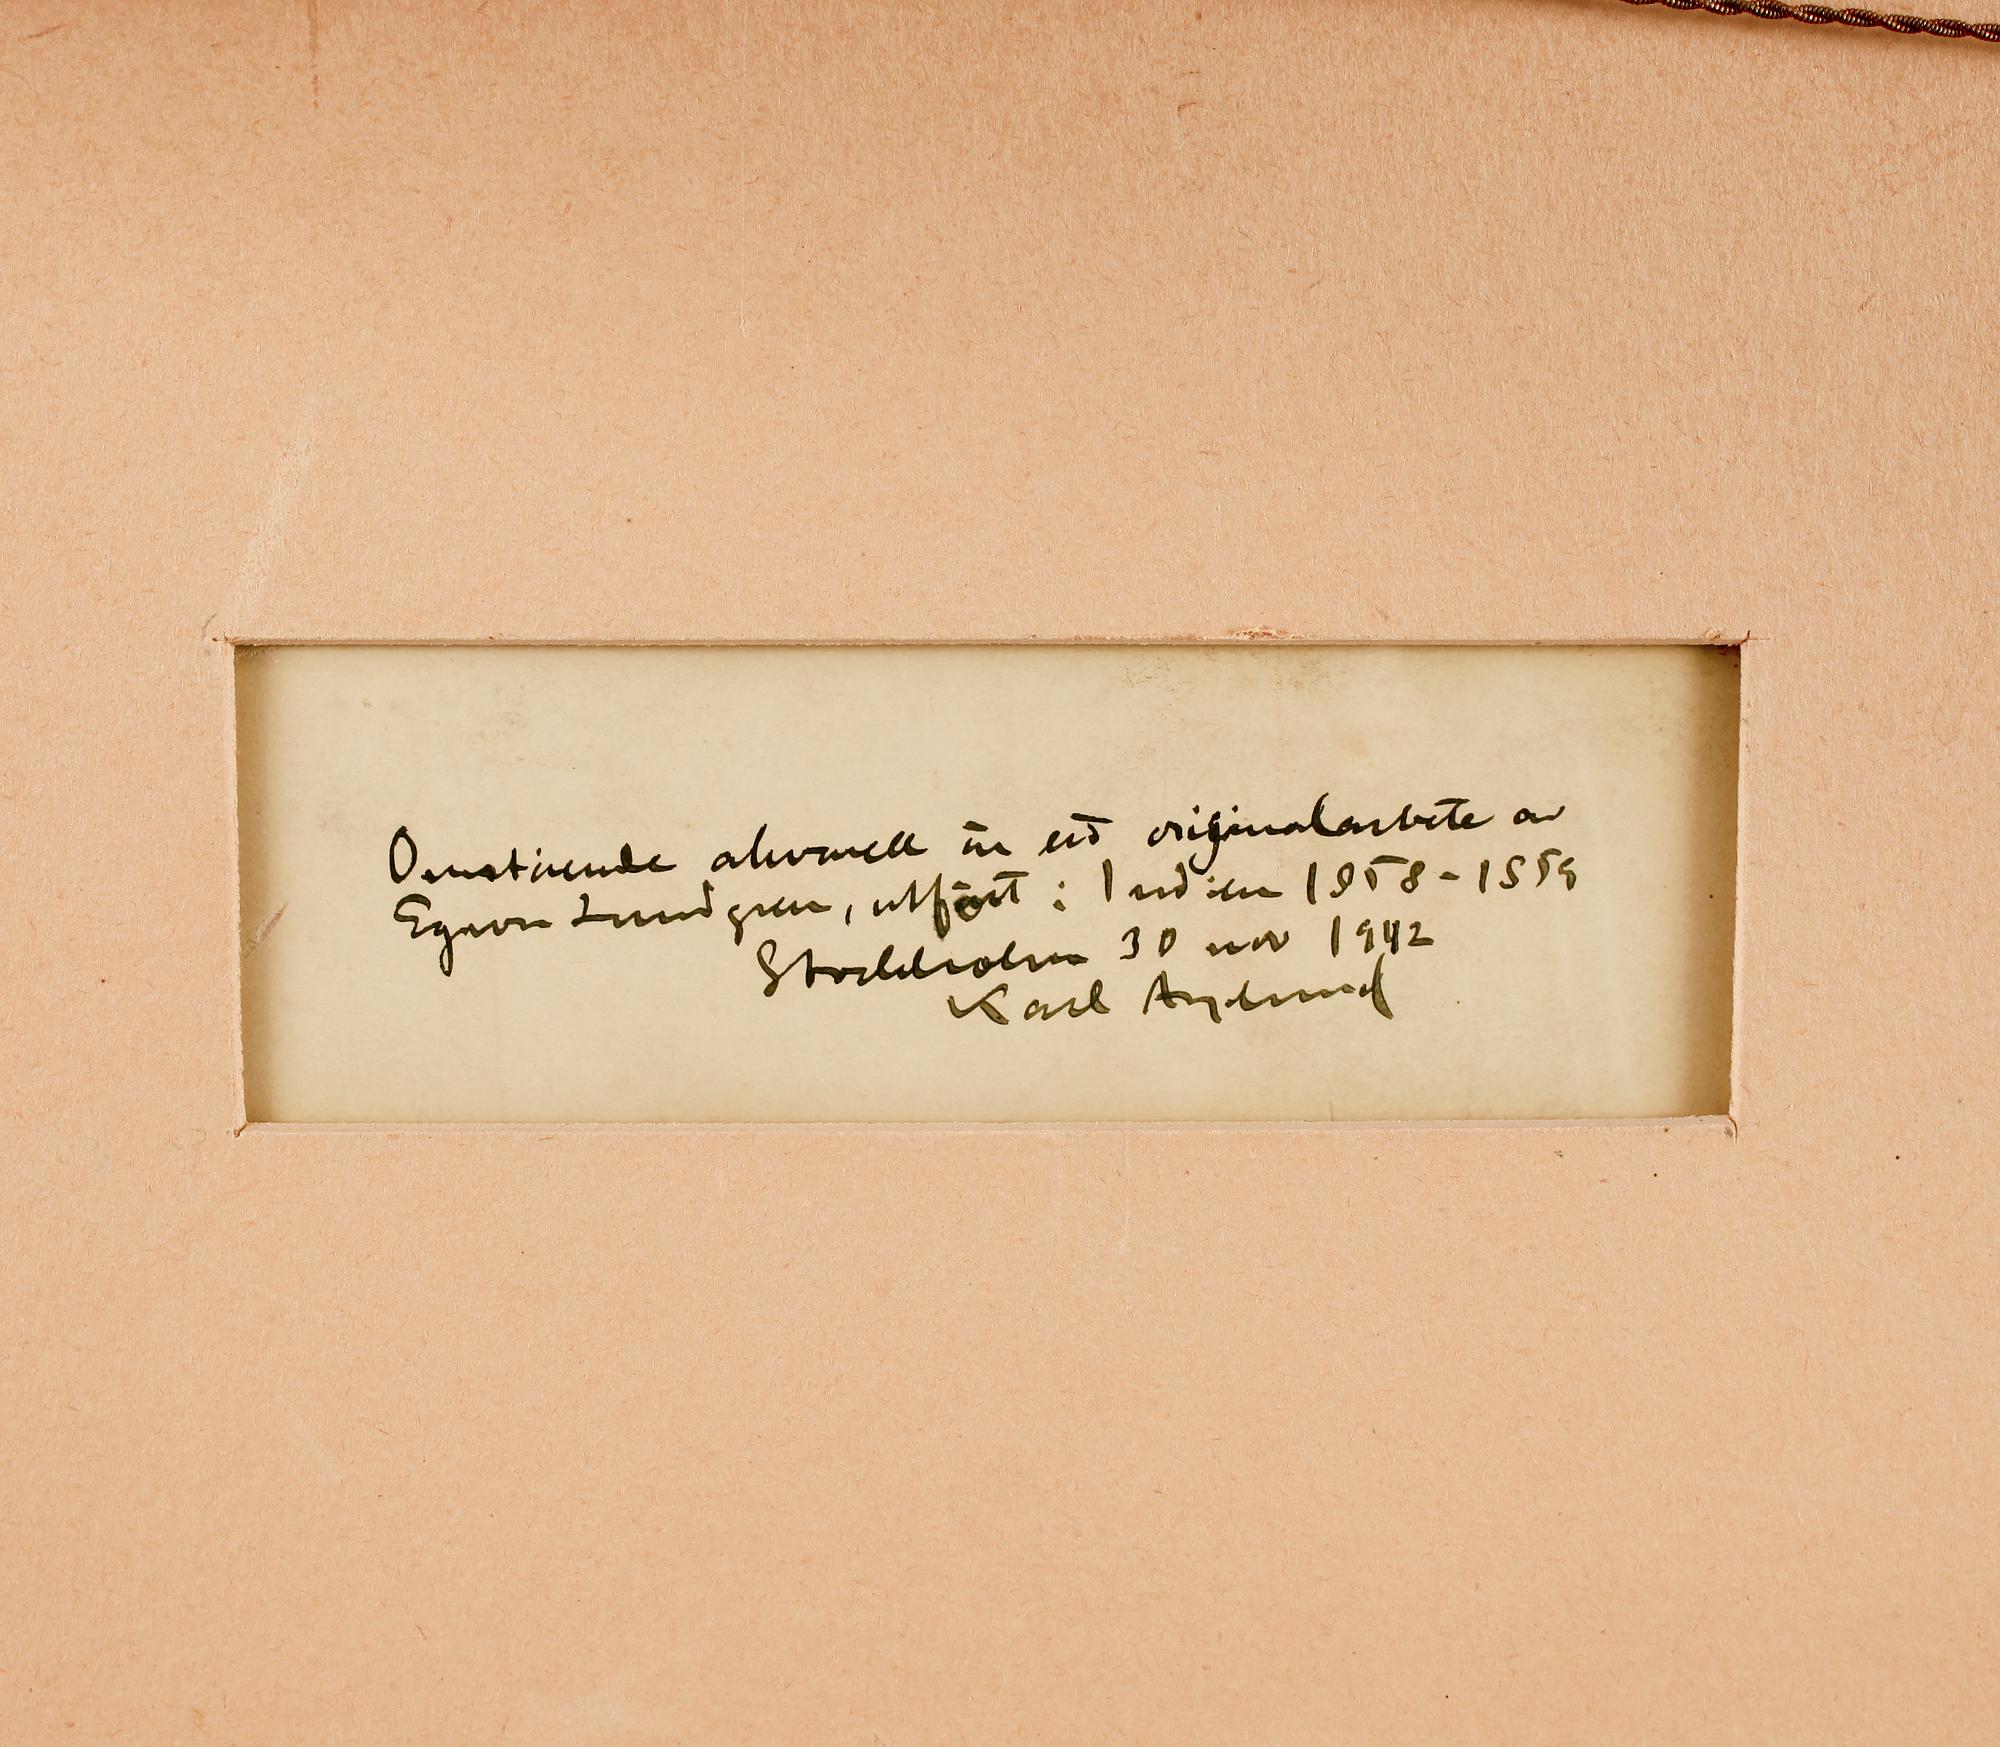 Omstående akvarell är ett originalarbete av
Egron Lundgren, utfört i Indien 1858-1859
Stockholm 30 nov 1942
Karl Asplund